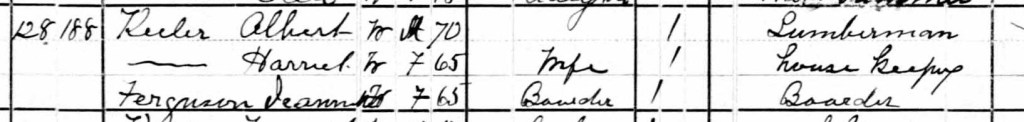 128 188 Keeler Albert W M 70 1 Lumberman
—— Harriet W F 65 Wife 1 house keeping
Ferguson Jeann W F 65 Boarder 1 Boarder